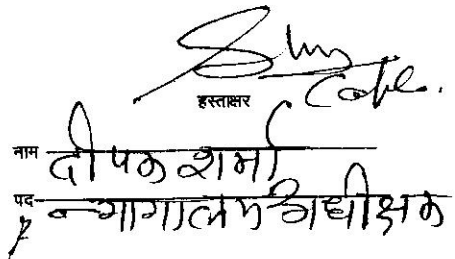 हस्ताक्षर
नाम दीपक शर्मा
पद न्यायालय अधीक्षक